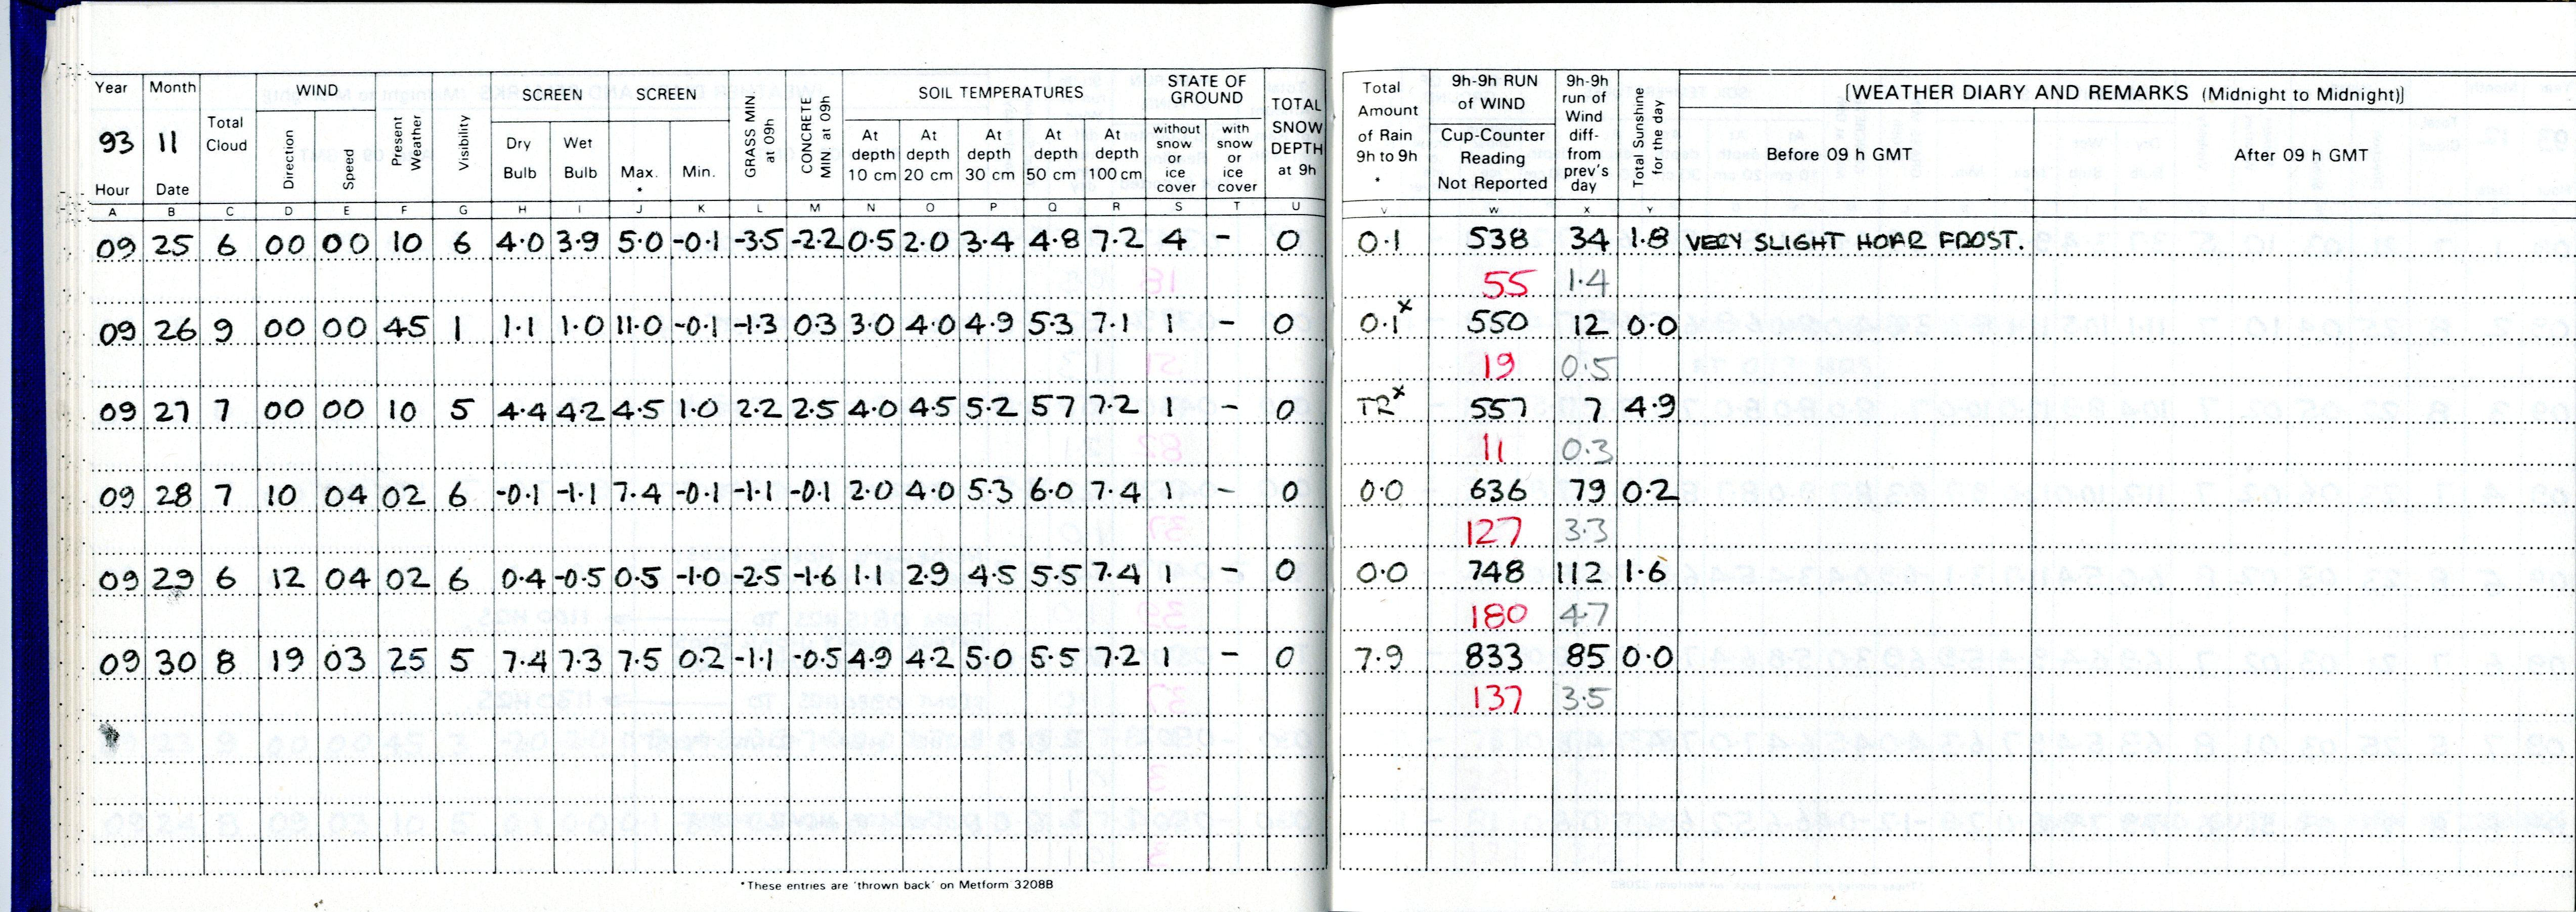 Year Month Total Cloud WIND Present Weather Visibility SCREEN SCREEN GRASS MIN. at 09h CONCRETE MIN. at 09h SOIL TEMPERATURES STATE OF GROUND TOTAL SNOW DEPTH at 9h Total Amount of Rain 9h to 9h * 9h-9h RUN of WIND 9h-9h run of Wind diff- from prev's day Total Sunshine for the day [WEATHER DIARY AND REMARKS (Midnight to Midnight)]
93 11 Direction Speed Dry Bulb Wet Bulb Max. * Min. At depth 10 cm At depth 20 cm At depth 30 cm At depth 50 cm At depth 100 cm without snow or ice cover with snow or ice cover Cup-Counter Reading Not Reported Before 09 h GMT After 09 h GMT
Hour Date
A B C D E F G H I J K L M N O P Q R S T U V W X Y
09 25 6 00 00 10 6 4.0 3.9 5.0 -0.1 -3.5 -2.2 0.5 2.0 3.4 4.8 7.2 4 - 0 0.1 538 34 1.8 VERY SLIGHT HOAR FROST.
55 1.4
09 26 9 00 00 45 1 1.1 1.0 11.0 -0.1 -1.3 0.3 3.0 4.0 4.9 5.3 7.1 1 - 0 0.1x 550 12 0.0
19 0.5
09 27 7 00 00 10 5 4.4 4.2 4.5 1.0 2.2 2.5 4.0 4.5 5.2 57 7.2 1 - 0 TRx 557 7 4.9
11 0.3
09 28 7 10 04 02 6 -0.1 -1.1 7.4 -0.1 -1.1 -0.1 2.0 4.0 5.3 6.0 7.4 1 - 0 0.0 636 79 0.2
127 3.3
09 29 6 12 04 02 6 0.4 -0.5 0.5 -1.0 -2.5 -1.6 1.1 2.9 4.5 5.5 7.4 1 - 0 0.0 748 112 1.6
180 4.7
09 30 8 19 03 25 5 7.4 7.3 7.5 0.2 -1.1 -0.5 4.9 4.2 5.0 5.5 7.2 1 - 0 7.9 833 85 0.0
137 3.5
*These entries are 'thrown back' on Metform 3208B